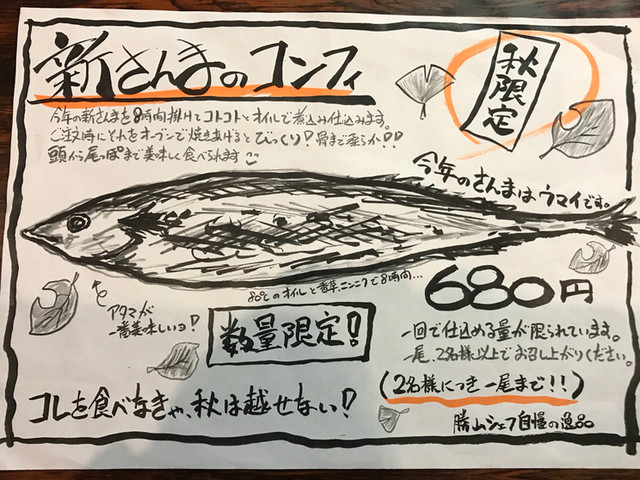 新さんまのコンフィ
秋限定
今年の新さんまを8時間掛けてコトコトとオイルで煮込み仕込みます。
ご注文時にそれをオーブンで焼きあげるとびっくり!骨まで柔らか!!
頭から尾っぽまで美味しく食べられます
今年のさんまはウマイです。
80℃のオイルと香草、ニンニクで8時間...
アタマが
一番美味しいョ!
680円
数量限定!
一回で仕込める量が限られています。
一尾、2名様以上でお召し上がりください。
(2名様につき一尾まで!!)
コレを食べなきゃ、秋は越せない!
勝山シェフ自慢の逸品